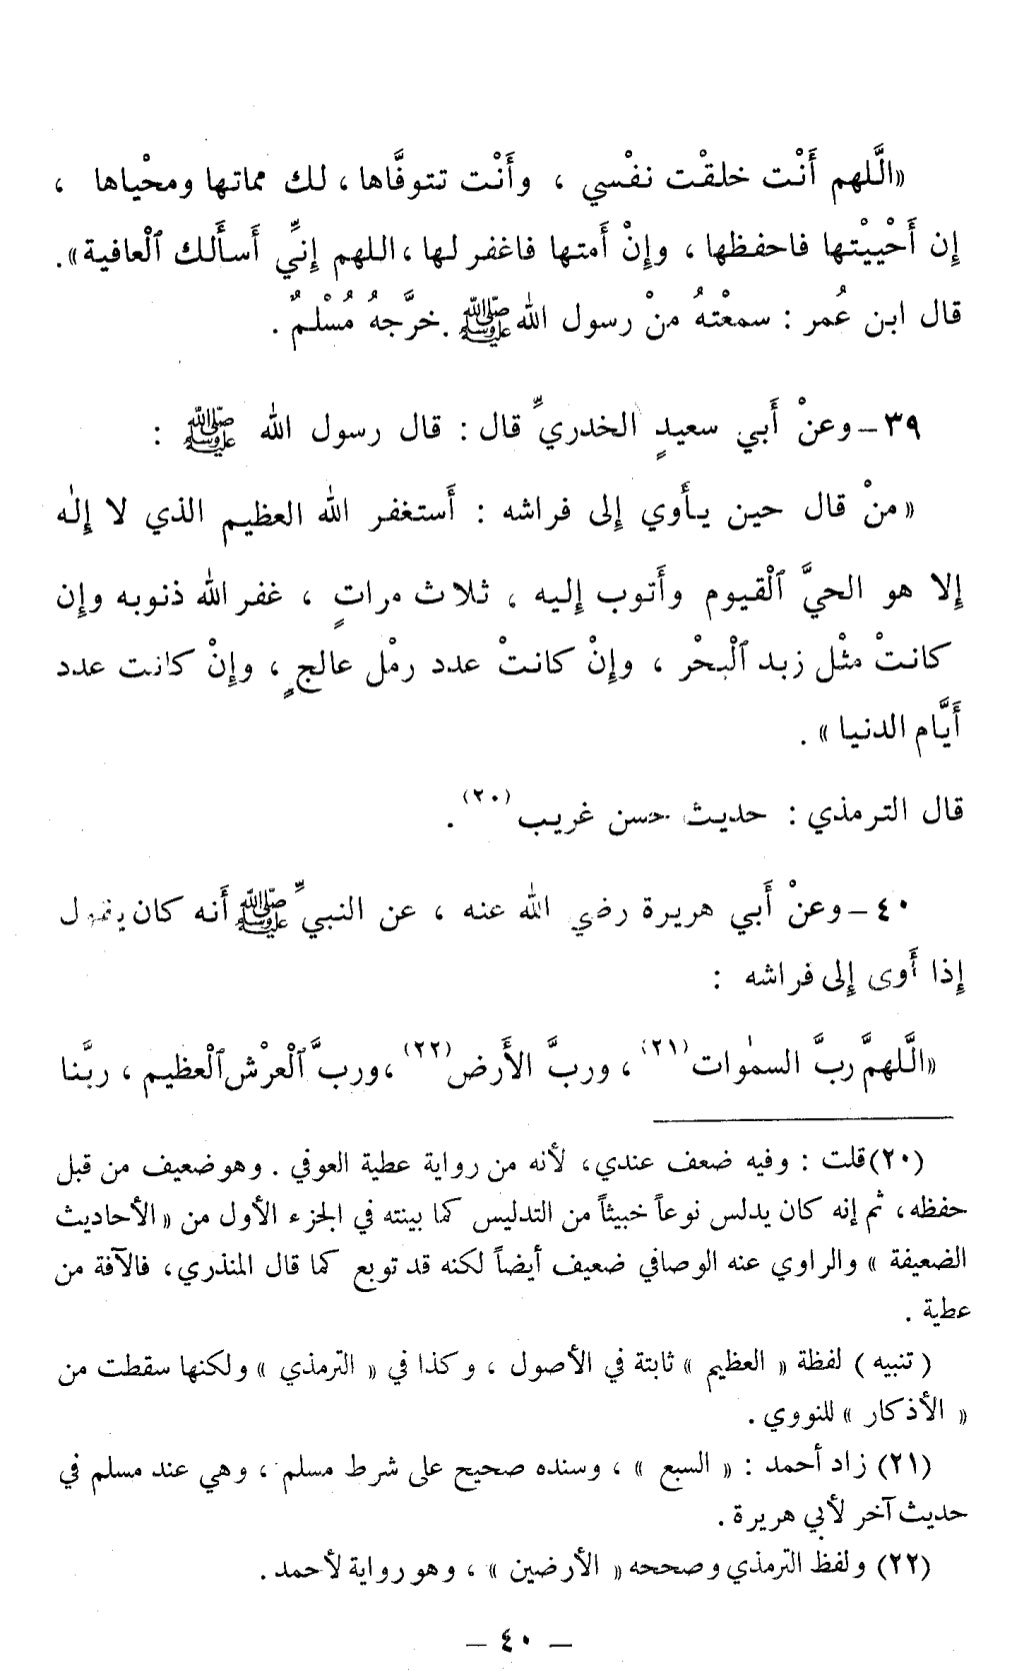 «الَّلهم أَنْت خلقْت نفْسي ، وأَنْت تتوفَّاها ، لك مماتها ومحْياها ،
إِن أَحْييْتها فاحفظها ، وإِنْ أَمتها فاغفر لها ، اللهم إِنيِّ أَسأَلك ٱلْعافية» .
قال ابن عُمر : سمعْتهُ منْ رسول الله ﷺ . خرَّجهُ مُسْلمٌ .
٣٩ – وعنْ أَبي سعيدٍ الخدريِّ قال : قال رسول الله ﷺ :
« منْ قال حين يأَوي إِلى فراشه : أَستغفر الله العظيم الذي لا إِلٰه
إِلا هو الحيَّ ٱلْقيوم وأَتوب إِليه ، ثلاث مراتٍ ، غفر الله ذنوبه وإِن
كانتْ مثْل زبد ٱلْبحْر ، وإِنْ كانتْ عدد رمْل عالجٍ ، وإِنْ كانت عدد
أَيَّام الدنيا » .
قال الترمذي : حديث حسن غريب (٢٠) .
٤٠ – وعنْ أَبي هريرة رضي الله عنه ، عن النبيِّ ﷺ أَنه كان يقول
إِذا أَوى إِلى فراشه :
«الَّلهمَّ ربَّ السمٰوات (٢١) ، وربَّ الأَرض (٢٢) ، وربَّ ٱلْعرْش ٱلْعظيم ، ربَّنا
(٢٠) قلت : وفيه ضعف عندي ، لأنه من رواية عطية العوفي . وهو ضعيف من قبل
حفظه ، ثم إنه كان يدلس نوعاً خبيثاً من التدليس كما بينته في الجزء الأول من « الأحاديث
الضعيفة » والراوي عنه الوصافي ضعيف أيضاً لكنه قد توبع كما قال المنذري ، فالآفة من
عطية .
( تنبيه ) لفظة « العظيم » ثابتة في الأصول ، وكذا في « الترمذي » ولكنها سقطت من
« الأذكار » للنووي .
(٢١) زاد أحمد : « السبع » ، وسنده صحيح على شرط مسلم ، وهي عند مسلم في
حديث آخر لأبي هريرة .
(٢٢) ولفظ الترمذي وصححه « الأرضين » ، وهو رواية لأحمد .
– ٤٠ –